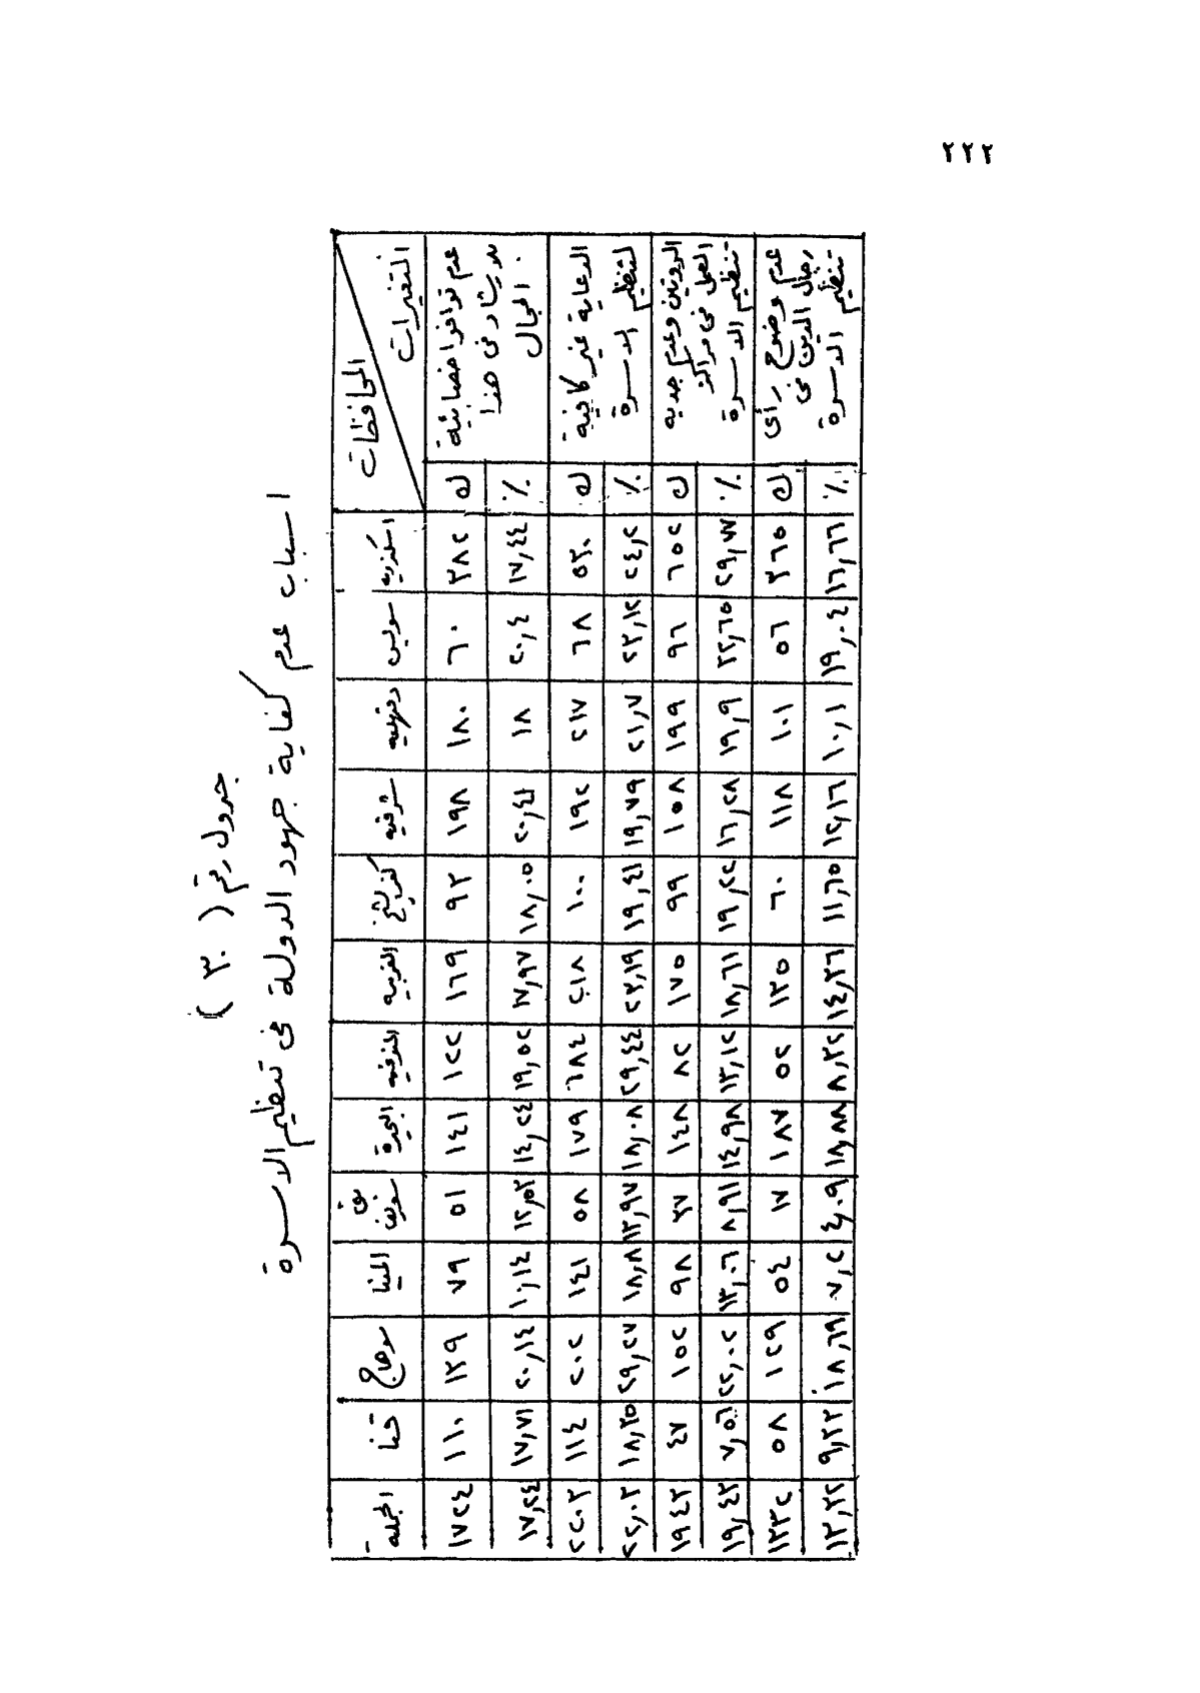 ٢٢٢
جدول رقم ( ٣٠ )
اسباب عدم كفاية جهود الدولة فى تنظيم الاسرة
المحافظات المتغيرات اسكندريه سويس دقهليه شرقيه كفر الشيخ الغربيه المنوفيه البحيرة بنى سويف المنيا سوهاج قنا الجملة
عدم توافر اخصائية للارشاد فى هذا المجال
ك ٣٨٢ ٦٠ ١٨٠ ١٩٨ ٩٣ ١٦٩ ١٢٢ ١٤١ ٥١ ٧٩ ١٣٩ ١١٠ ١٧٢٤
٪ ١٧,٤٤ ٢٠,٤ ١٨ ٢٠,٤١ ١٨,٠٥ ١٧,٩٧ ١٩,٥٢ ١٤,٢٤ ١٢,٥٣ ١٠,١٤ ٢٠,١٤ ١٧,٧١ ١٧,٢٤
الدعاية غير كافية لتنظيم الاسرة
ك ٥٣٠ ٦٨ ٢١٧ ١٩٢ ١٠٠ ٢١٨ ٦٨٤ ١٧٩ ٥٨ ١٤١ ٢٠٢ ١١٤ ٢٢٠٣
٪ ٢٤,٢ ٢٣,١٢ ٢١,٧ ١٩,٧٩ ١٩,٤١ ٢٣,١٩ ٢٩,٤٤ ١٨,٠٨ ١٣,٩٧ ١٨,٨ ٢٩,٢٧ ١٨,٣٥ ٢٢,٠٣
الروتين وعدم جديه العمل فى مراكز تنظيم الاسرة
ك ٦٥٢ ٩٦ ١٩٩ ١٥٨ ٩٩ ١٧٥ ٨٢ ١٤٨ ٣٧ ٩٨ ١٥٢ ٤٧ ١٩٤٣
٪ ٢٩,٧٧ ٣٢,٦٥ ١٩,٩ ١٦,٢٨ ١٩,٢٢ ١٨,٦١ ١٣,١٢ ١٤,٩٨ ٨,٩١ ١٣,٠٦ ٢٢,٠٢ ٧,٥٦ ١٩,٤٣
عدم وضوح رأى رجال الدين فى تنظيم الاسرة
ك ٣٦٥ ٥٦ ١٠١ ١١٨ ٦٠ ١٣٥ ٥٢ ١٨٧ ١٧ ٥٤ ١٢٩ ٥٨ ١٣٣٢
٪ ١٦,٦٦ ١٩,٠٤ ١٠,١ ١٢,١٦ ١١,٦٥ ١٤,٣٦ ٨,٣٢ ١٨,٨٨ ٤,٠٩ ٧,٢ ١٨,٦٩ ٩,٣٣ ١٣,٣٢